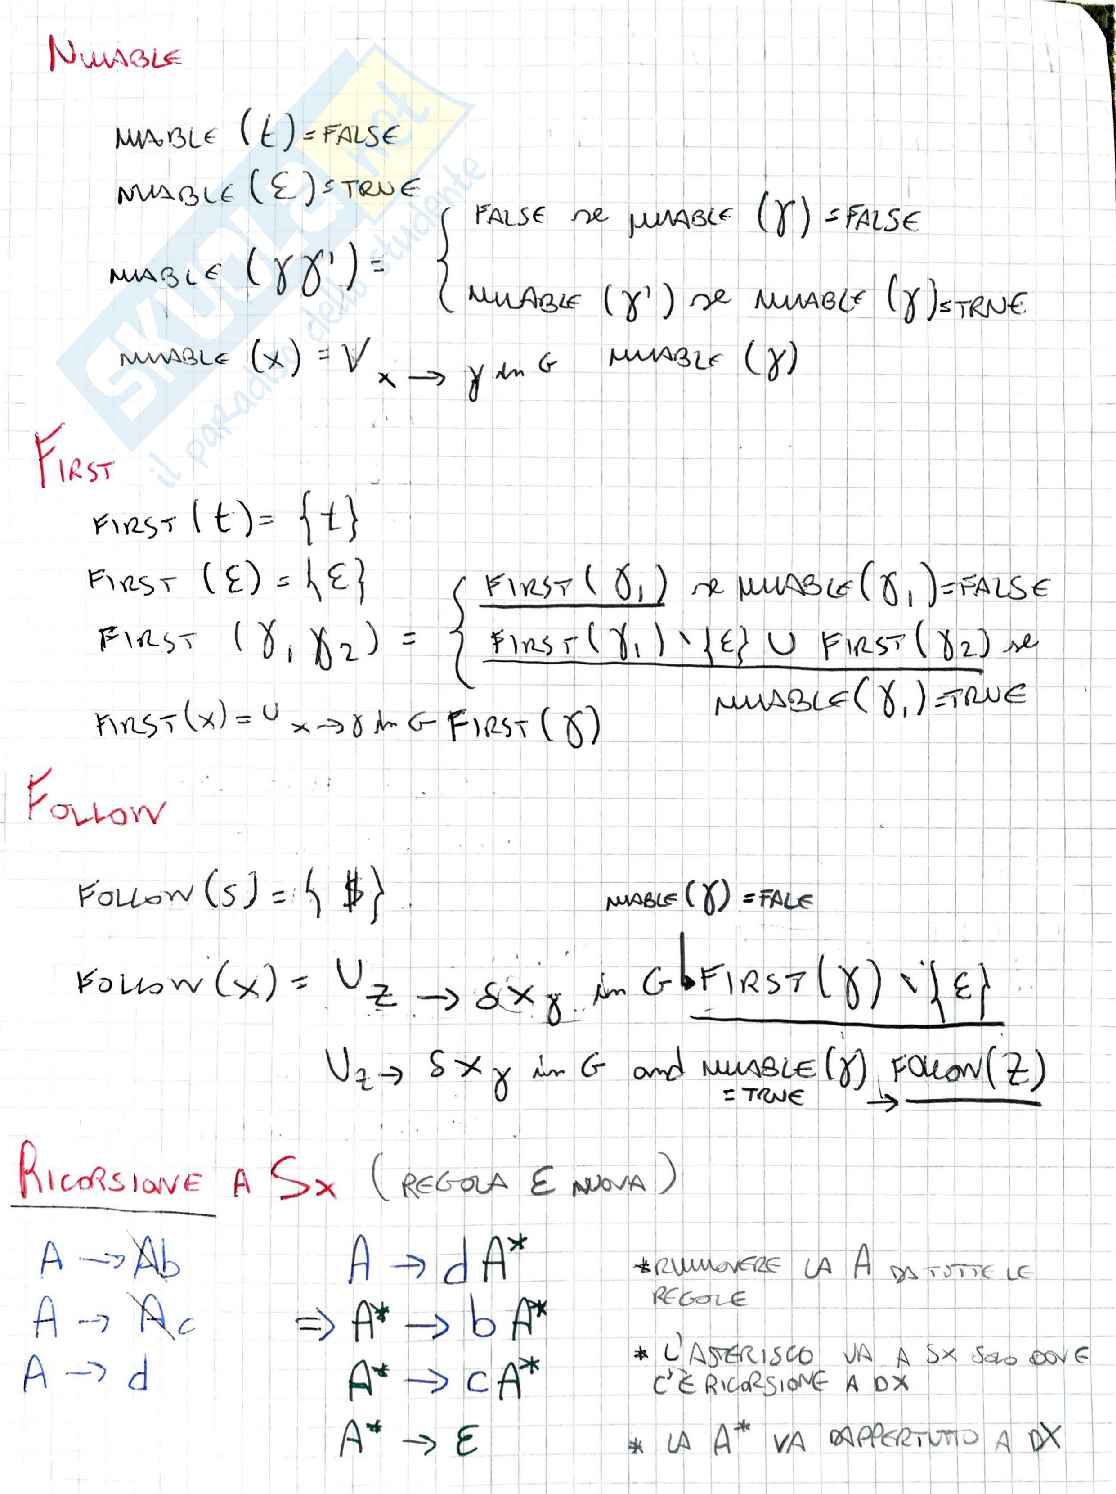 NULLABLE
NULLABLE (t) = FALSE
NULLABLE (ε) = TRUE
NULLABLE (γγ') = { FALSE se NULLABLE (γ) = FALSE
NULLABLE (γ') se NULLABLE (γ) = TRUE
NULLABLE (x) = V x → γ in G NULLABLE (γ)
FIRST
FIRST (t) = {t}
FIRST (ε) = {ε}
FIRST (γ1 γ2) = { FIRST (γ1) se NULLABLE (γ1) = FALSE
FIRST (γ1) \ {ε} U FIRST (γ2) se
NULLABLE (γ1) = TRUE
FIRST (x) = U x → γ in G FIRST (γ)
FOLLOW
FOLLOW (S) = { $ }
NULLABLE (γ) = FALE
FOLLOW (x) = U Z → δ X γ in G FIRST (γ) \ {ε}
U Z → δ X γ in G and NULLABLE (γ) → FOLLOW (Z)
= TRUE
RICORSIONE A SX (REGOLA E NUOVA)
A → Ab
A → Ac
A → d
A → d A*
⇒ A* → b A*
A* → c A*
A* → ε
* RIMUOVERE LA A DA TUTTE LE
REGOLE
* L'ASTERISCO VA A SX SOLO DOVE
C'È RICORSIONE A DX
* LA A* VA DAPPERTUTTO A DX
SKUOLA.net
il paradiso dello studente